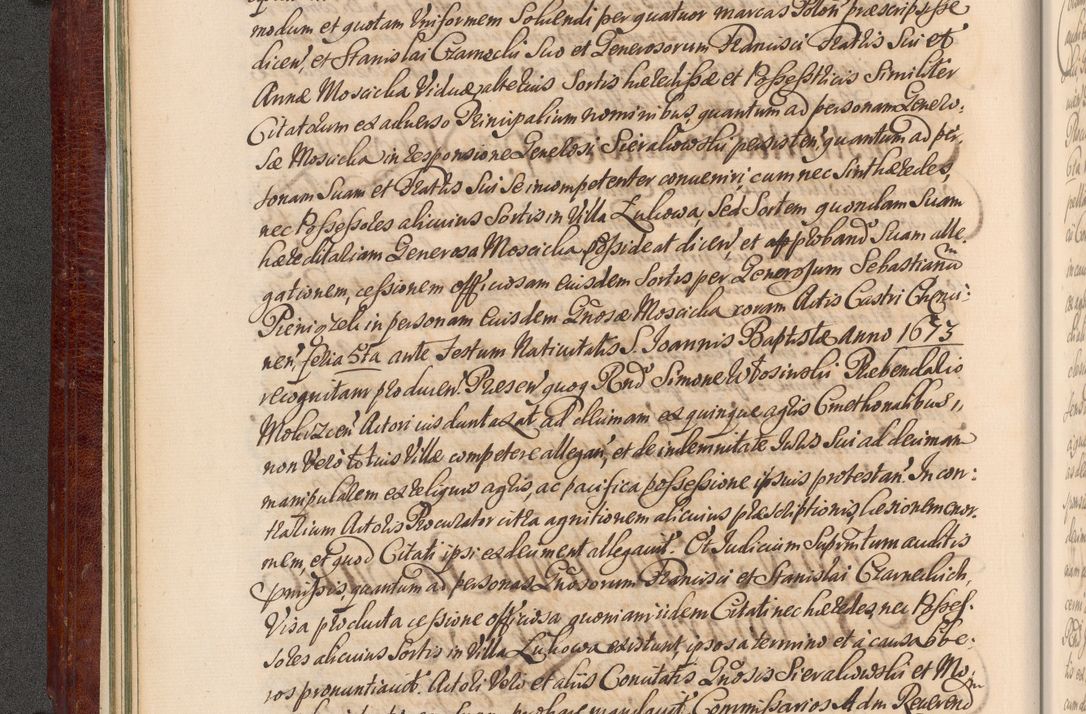 modum et quotam Uniformem Solvendi per quatuor marcas Polon præscripsisse
dicen̄, et Stanislai Czarnecki Suo et Generosorum Francisci Fratris Sui et
Annæ Moscicka Viduæ, alterius Sortis hæredissæ et Possessricis Similiter
Citatorum ex adverso Principalium nominibus, quantum ad personam Genero-
sæ Moscicka in responsione Generosi Sierakowski persisten, quantum ad per-
sonam Suam et Fratris Sui Se incompetenter conveniri, cum nec Sint hæredes,
nec Possessores alicuius Sortis in Villa Zukowa, Sed Sortem quondam Suam
hæreditariam Generosa Moscicka possideat dicen̄, et approband Suam alle-
gationem, cessionem officiosam eiusdem Sortis per Generosum Sebastianū
Pieniązek in personam eiusdem Gnosæ Moscicka coram Actis Castri Chenci-
nen̄, feria 5ta ante Festum Nativitatis S. Joannis Baptistæ Anno 1673
recognitam producen. Præsen quoq Rnd Simone Wosinski Præbendario
Mokrzcen Actori ius duntaxat ad decimam ex quinque agris Cmethonalibus,
non Vero totius Villæ competere allegan, et de indemnitate Iuris Sui ad decimam
manipularem ex reliquis agris, ac pacifica possessione ipsius protestan. In con-
trarium Actoris Procurator citra agnitionem alicuius præscriptionis, læsionem enor-
mem, et quod Citati ipsi ex decument allegavit. Et Iudicium Suprntum auditis
pmissis, quantum ad personas Gnosorum Francisci et Stanislai Czarneckich,
Visa producta cessione officiosa, quoniam iidem Citati nec hæredes, nec Posses-
sores alicuius Sortis in Villa Zukowa existunt, ipsos a termino et a causa libe-
ros pronuntiavit. Actori Vero et aliis Conutatis Gnosis Sierakowski et Mo-
mandavit Commissarios Adm Reverend